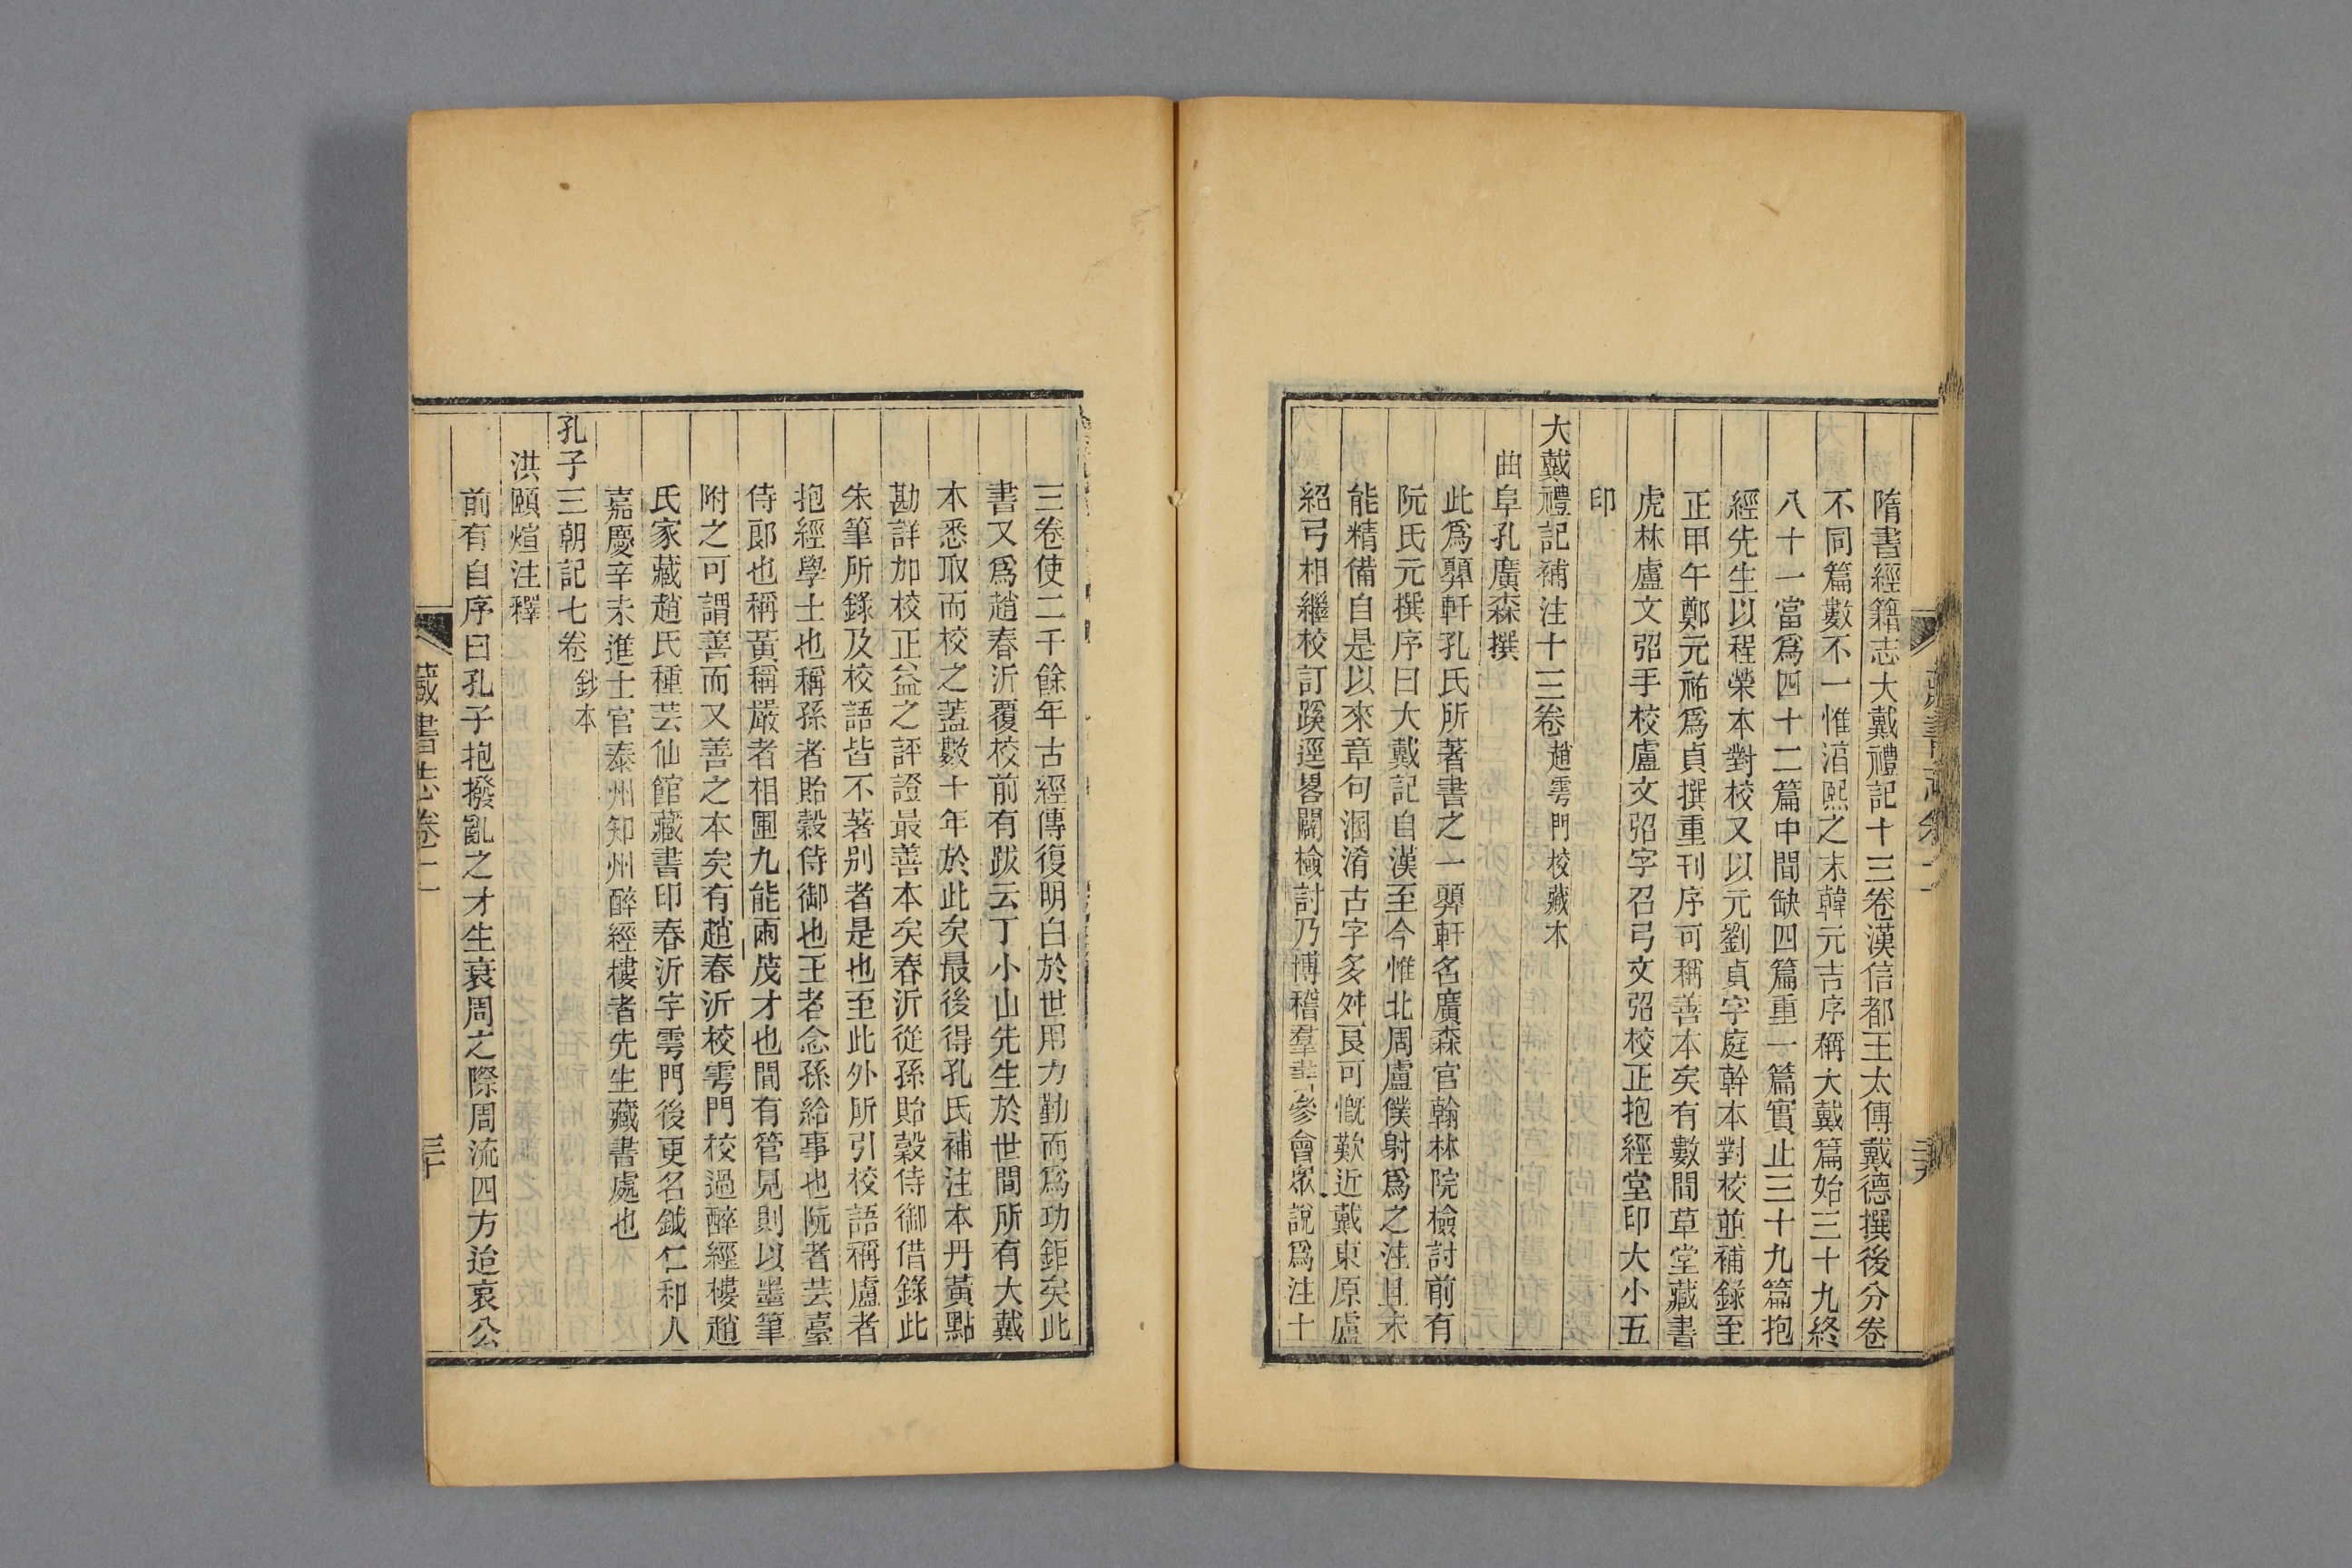 隋書經籍志大戴禮記十三卷漢信都王太傅戴德撰後分卷
不同篇數不一惟淳熙之末韓元吉序稱大戴篇始三十九終
八十一當爲四十二篇中間缺四篇重一篇實止三十九篇抱
經先生以程榮本對校又以元劉貞字庭幹本對校並補錄至
正甲午鄭元祐爲貞撰重刊序可稱善本矣有數間草堂藏書
虎林盧文弨手校盧文弨字召弓文弨校正抱經堂印大小五
印
大戴禮記補注十三卷 趙雩門校藏本
曲阜孔廣森撰
此爲顨軒孔氏所著書之一顨軒名廣森官翰林院檢討前有
阮氏元撰序曰大戴記自漢至今惟北周盧僕射爲之注且未
能精備自是以來章句溷淆古字多舛良可慨歎近戴東原盧
紹弓相繼校訂蹊逕畧闢檢討乃博稽羣書參會眾說爲注十
三卷使二千餘年古經傳復明白於世用力勤而爲功鉅矣此
書又爲趙春沂覆校前有跋云丁小山先生於世間所有大戴
本悉取而校之蓋數十年於此矣最後得孔氏補注本丹黃點
勘詳加校正益之評證最善本矣春沂從孫貽穀侍御借錄此
朱筆所錄及校語皆不著别者是也至此外所引校語稱盧者
抱經學士也稱孫者貽穀侍御也王者念孫給事也阮者芸臺
侍郎也稱黃稱嚴者相圃九能兩茂才也間有管見則以墨筆
附之可謂善而又善之本矣有趙春沂校雩門校過醉經樓趙
氏家藏趙氏種芸仙館藏書印春沂字雩門後更名鉞仁和人
嘉慶辛未進士官泰州知州醉經樓者先生藏書處也
孔子三朝記七卷 鈔本
洪頤煊注釋
前有自序曰孔子抱撥亂之才生衰周之際周流四方迨哀公
藏書志卷二
三十